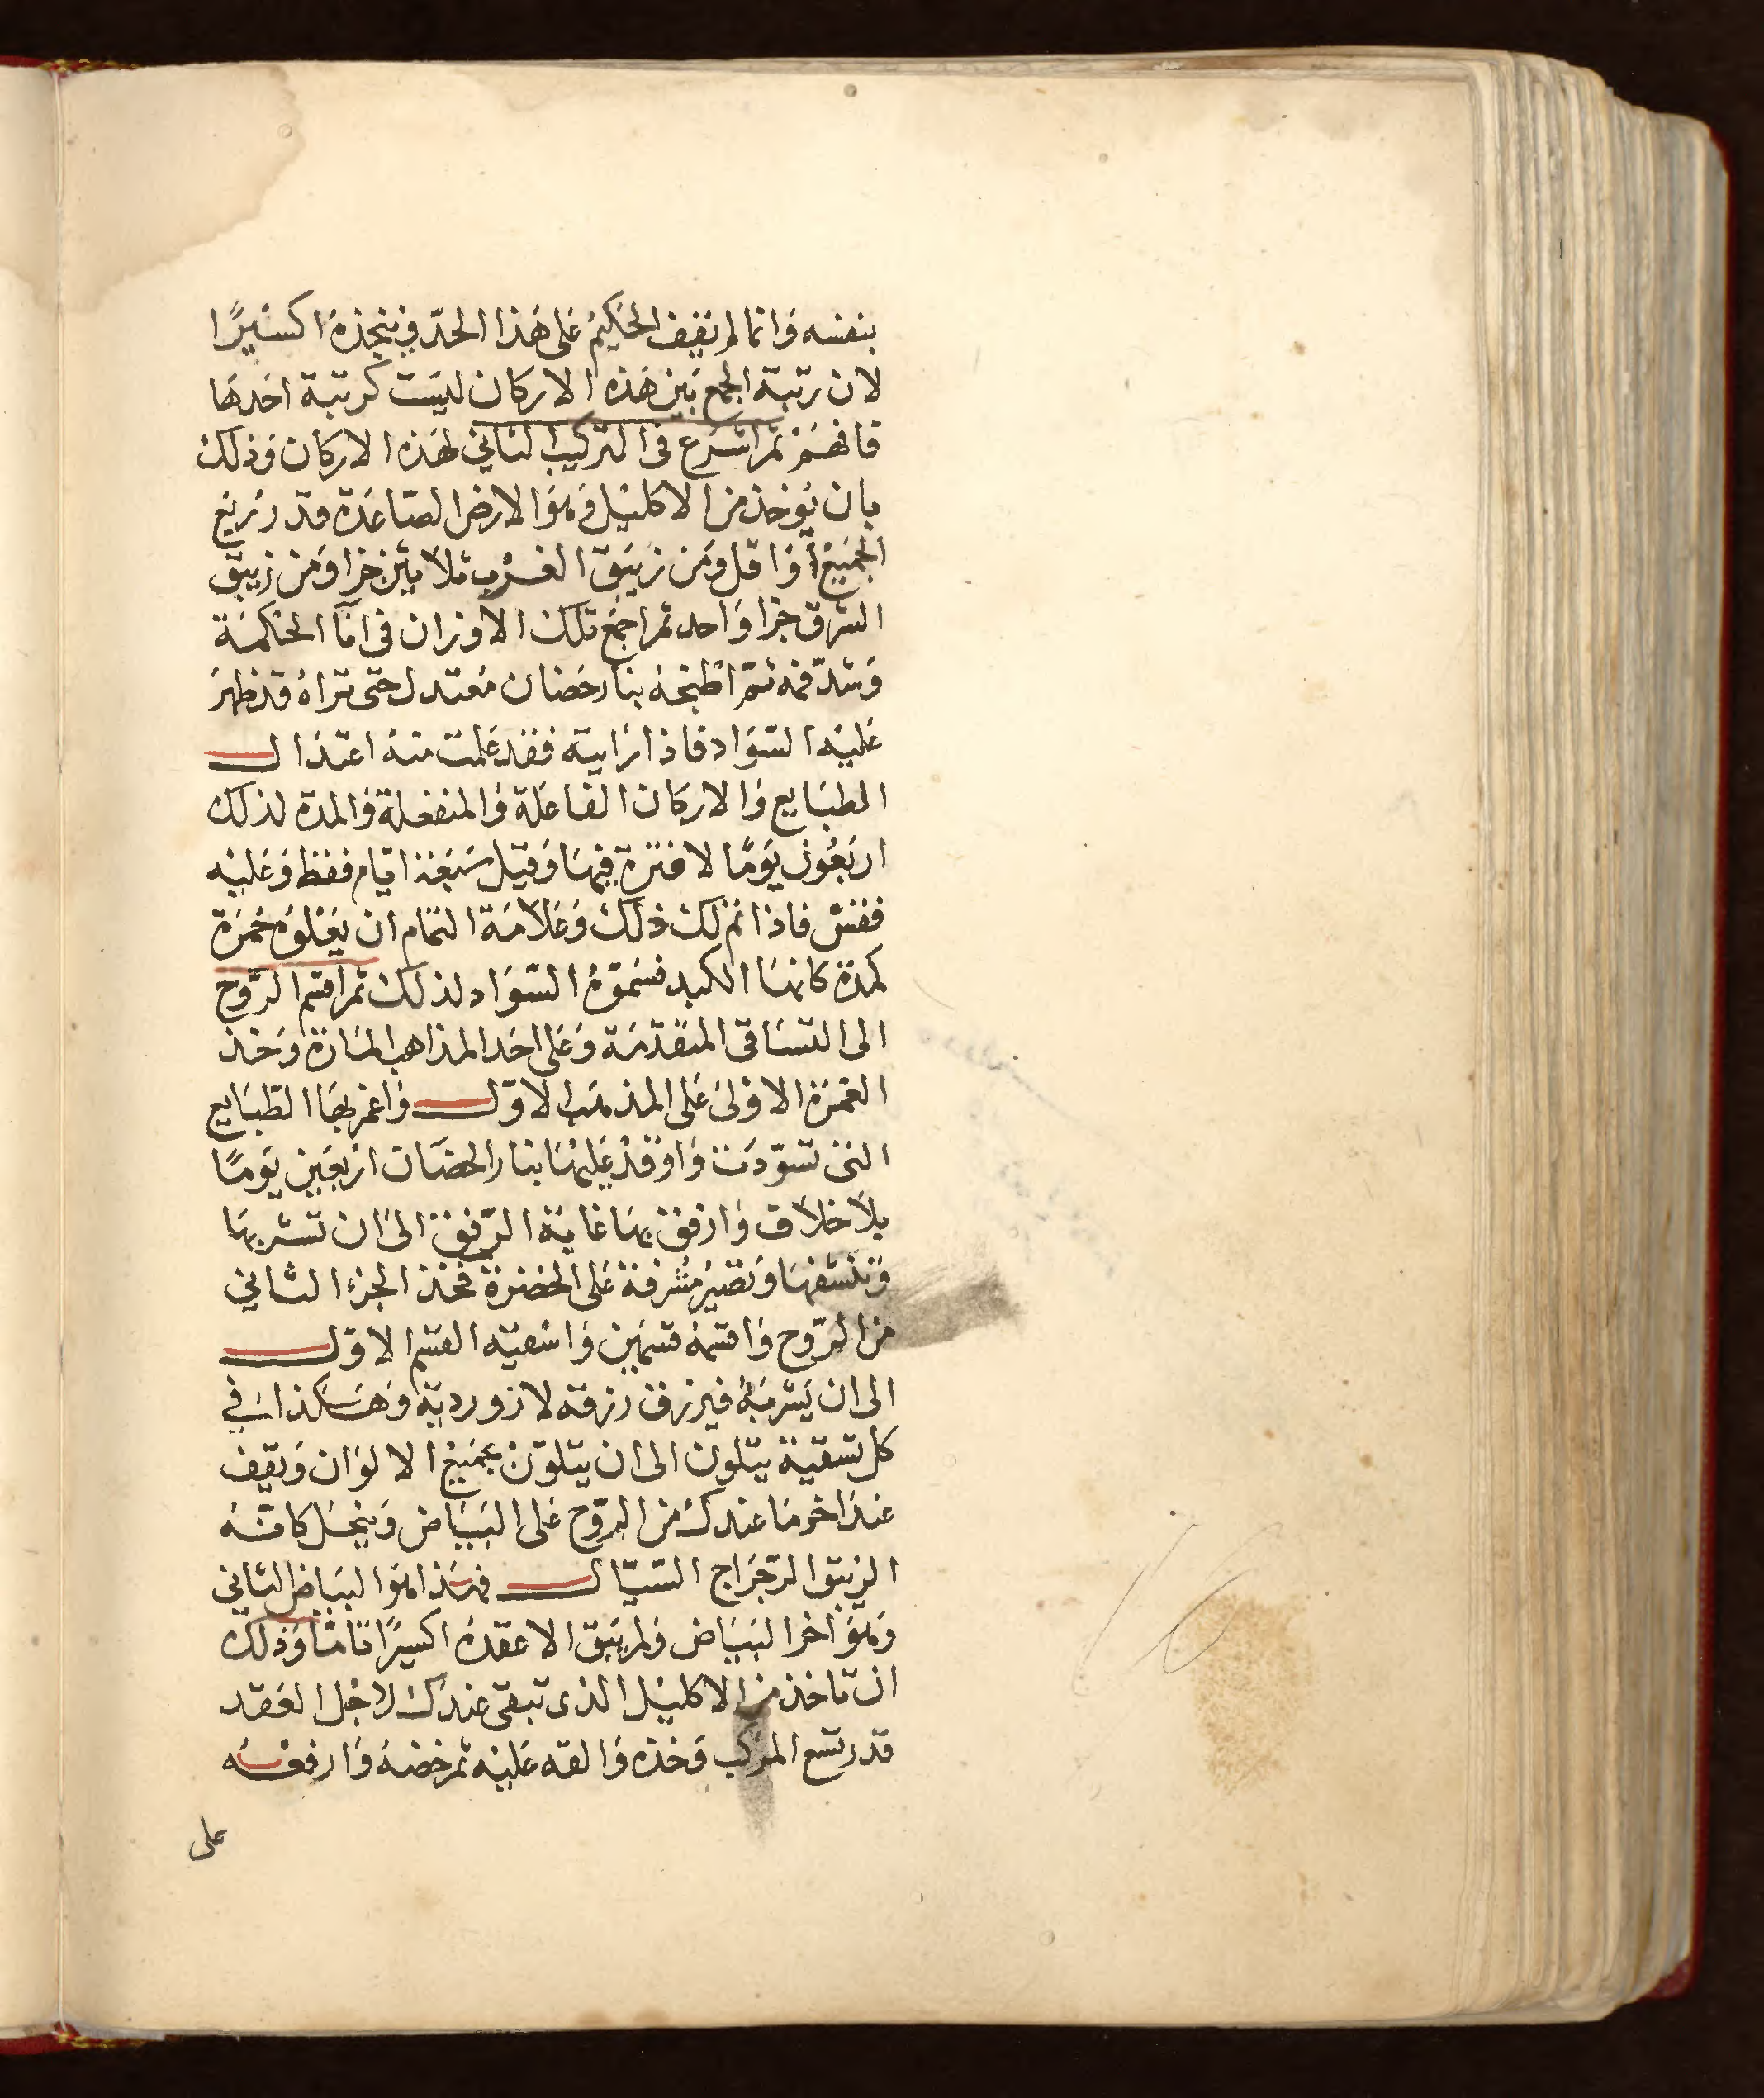 بنفسه وانما لم يقف الحكيم على هذا الحد فيتخذه اكسيرا
لان رتبة الجمع بين هذه الاركان ليست كرتبة احدها
فافهم ثم اشرع فى التركيب الثاني لهذه الاركان وذلك
بان يوخذ من الاكليل وهو الارض الصاعدة قدر ربع
الجميع أو اقل ومن زيبق الغرب ثلاثين جزا ومن زيبق
الشرق جزا واحد ثم اجمع تلك الاوزان فى انآ الحكمة
وشدّ فمه ثمّ اطبخه بنار حضان معتدل حتى تراه قد ظهر
عليه السّواد فاذا رايته فقد علمت منه اعتدال
الطبايع والاركان الفاعلة والمنفعلة والمدة لذلك
اربعون يومًا لا فترة فيها وقيل سبعة ايام فقط وعليه
ففتش فاذا تم لك ذلك وعلامة التمام ان يعلوه حمرة
كمدة كانها الكبد فسمّوه السّواد لذلك ثم اقسم الرّوح
الى التساقى المتقدّمة وعلى احد المذاهب المارة وخذ
الغمرة الاولى على المذهب الاوّل واغمر بها الطّبايع
التى تسوّدت واوقد عليها بنار الحضان اربعين يومًا
بلا خلاف وارفق بها غاية الرّفق الى ان تشربها
وتنشفها وتصير مشرفة على الخضرة فخذ الجزء الثاني
من الرّوح واقسمه قسمين واسقيه القسم الاوّل
الى ان يشربه فيزرق زرقة لازورديّة وهكذا في
كل تسقية يتلون الى ان يتلوّن بجميع الالوان ويقف
عند اخر ما عندك من الرّوح على البياض وينحل كانّه
الزيبق الرّجراج السّيّال فهذا هو البياض الثاني
وهو اخر البياض ولم يبق الا عقده اكسيرًا تامّا وذلك
ان تاخذ من الاكليل الذى تبقى عندك لاجل العقد
قدر تسع المركب وخذه والقه عليه ثم خضه وارفعه
على